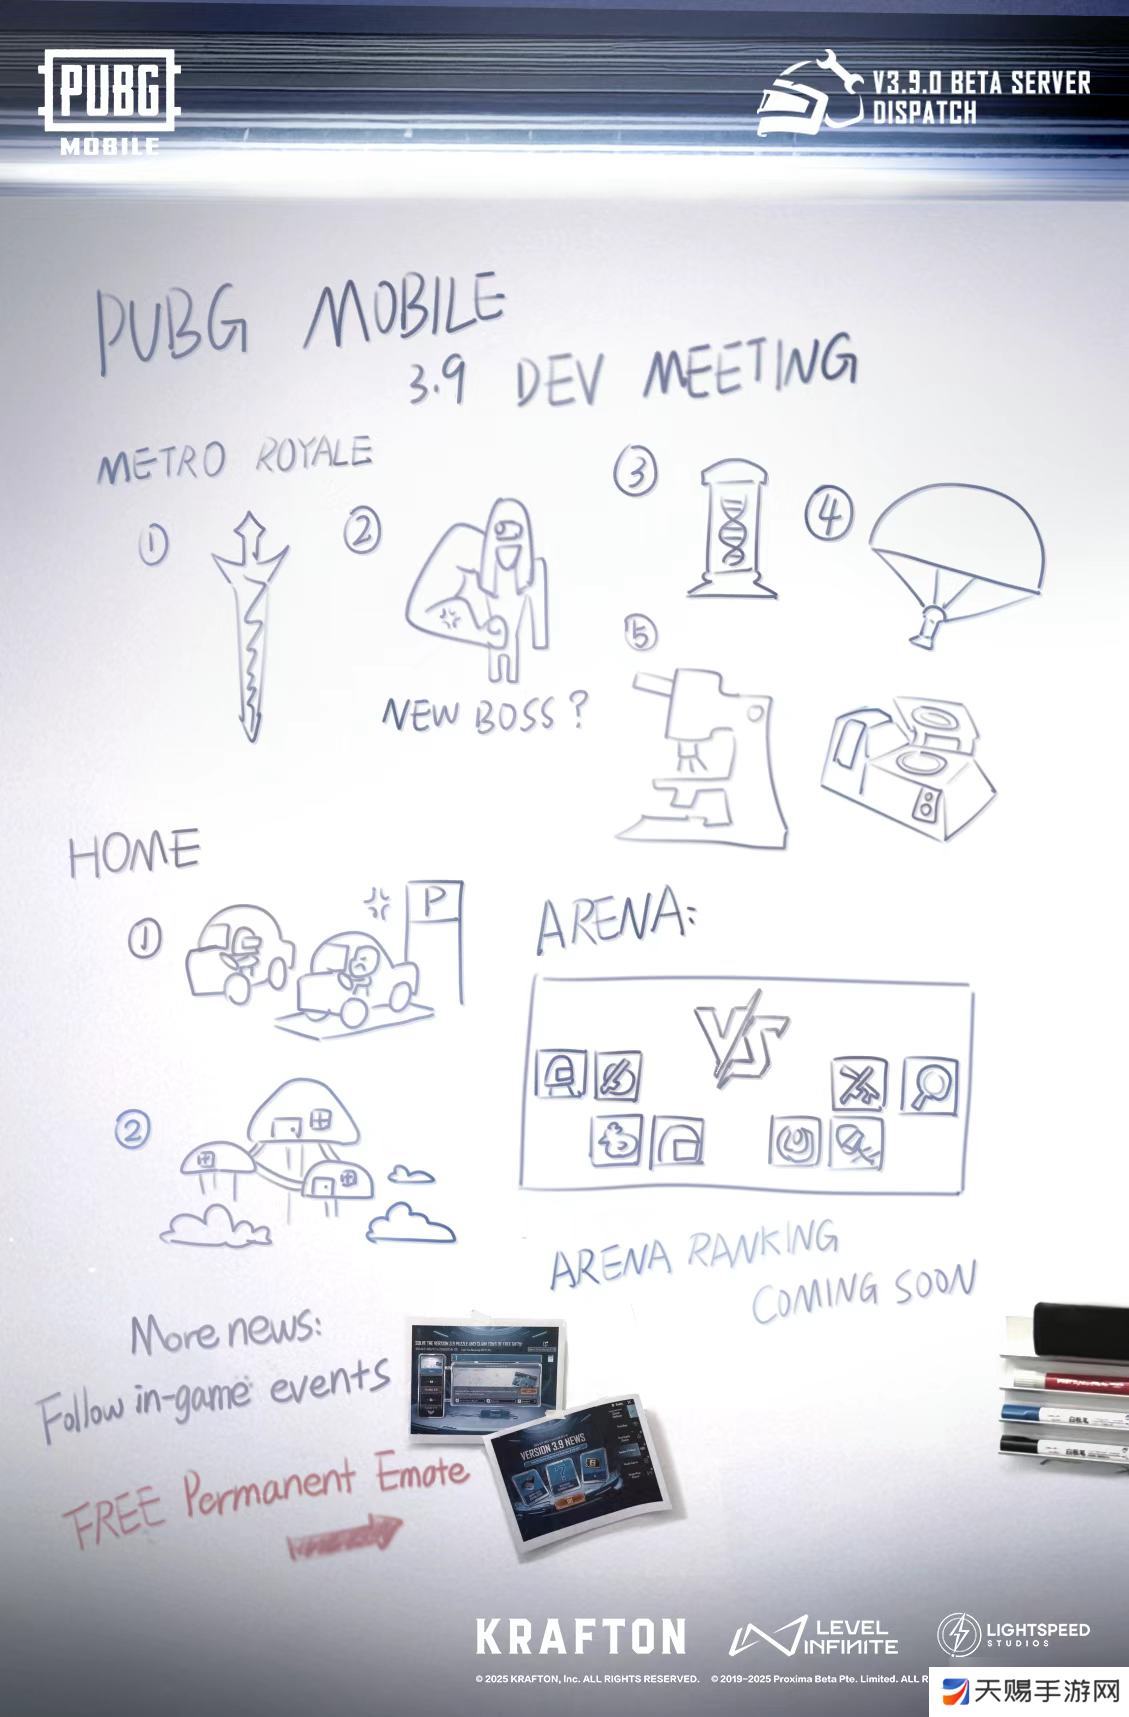 PUBG
MOBILE
V3.9.0 BETA SERVER
DISPATCH
PUBG MOBILE
3.9 DEV MEETING
METRO ROYALE
①
②
NEW BOSS?
③
④
⑤
HOME
①
P
②
ARENA:
VS
ARENA RANKING
COMING SOON
More news:
Follow in-game events
FREE Permanent Emote
VERSION 3.9 NEWS
KRAFTON
LEVEL
INFINITE
LIGHTSPEED
STUDIOS
© 2025 KRAFTON, Inc. ALL RIGHTS RESERVED.
© 2019-2025 Proxima Beta Pte. Limited. ALL R
天赐手游网